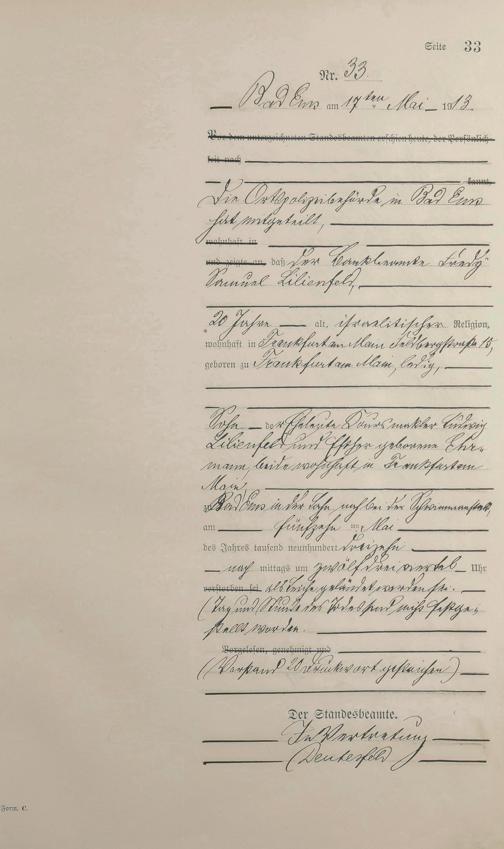 Seite 33
Nr. 33.
Bad Ems am 17ten Mai 1913.
Vor dem unterzeichneten Standesbeamten erschien heute, der Persönlich-
keit nach
kannt,
Die Ortspolizeibehörde in Bad Ems
hat mitgeteilt,
wohnhaft in
und zeigte an, daß der Bankbeamte Fredy
Samuel Lilienfeld,
20 Jahre alt, israelitischer Religion,
wohnhaft in Frankfurt am Main Feldbergstraße 15,
geboren zu Frankfurt am Main, ledig,
Sohn der Eheleute Kursmakler Ludwig
Lilienfeld und Esther geborene Ehr-
mann, beide wohnhaft in Frankfurt am
Main,
zu Bad Ems in der Lahn, nah bei der Schwimmanstalt,
am fünfzehn ten Mai
des Jahres tausend neunhundert dreizehn
nach mittags um zwölf dreiviertel Uhr
verstorben sei als Leiche geländet worden sei.
(Tag und Stunde des Todes sind nicht festge-
stellt worden.
Vorgelesen, genehmigt und
(Vorstand 20 Druckwort gestrichen)
Der Standesbeamte.
In Vertretung
Form. C.